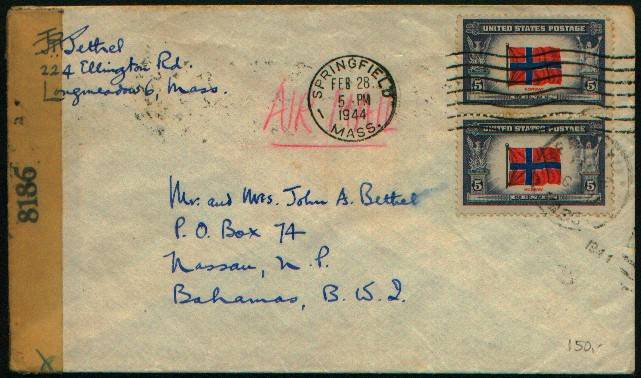 J. Bethel
224 Ellington Rd.
Longmeadow 6, Mass.
8186
AIR MAIL
SPRINGFIELD
FEB 28
5 PM
1944
MASS.
UNITED STATES POSTAGE
5 5
NORWAY
UNITED STATES POSTAGE
5 5
NORWAY
1944
Mr. and Mrs. John A. Bethel
P. O. Box 74
Nassau, N. P.
Bahamas, B. W. I.
150,-
X